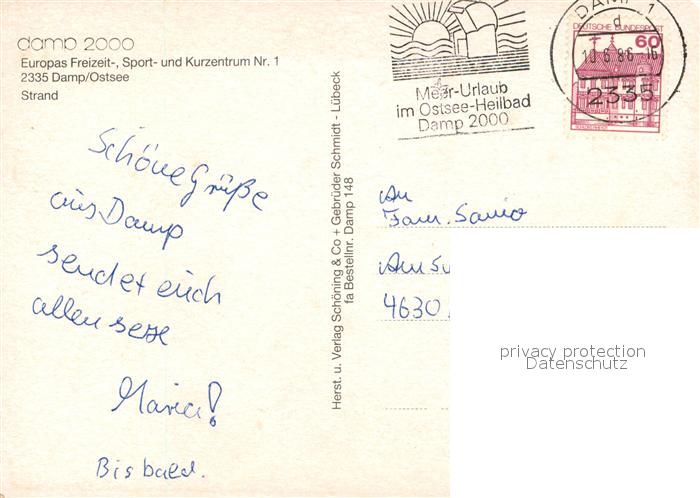 damp 2000
Europas Freizeit-, Sport- und Kurzentrum Nr. 1
2335 Damp/Ostsee
Strand
Schöne Grüße
aus Damp
sendet euch
allen
Maria!
Bis bald.
Herst. u. Verlag Schöning & Co + Gebrüder Schmidt - Lübeck
fa Bestellnr. Damp 148
Meer-Urlaub
im Ostsee-Heilbad
Damp 2000
DEUTSCHE BUNDESPOST
60
DAMP 1
d
10.6.86-16
2335
An
Fam.
Am
4630
privacy protection
Datenschutz